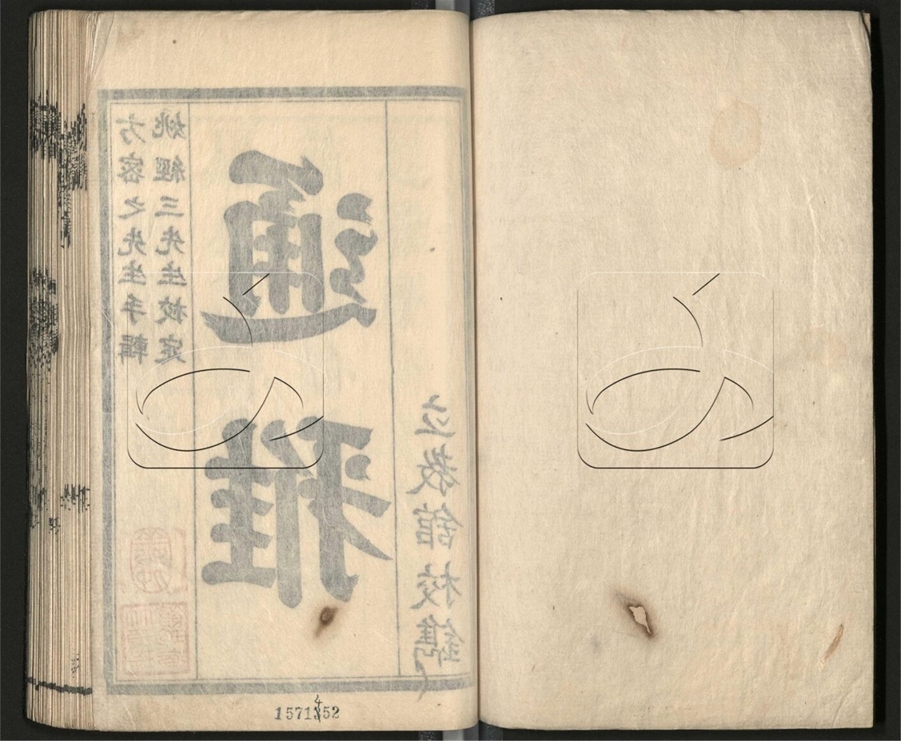 姚經三先生校定
方密之先生手輯
通雅
立教館校鐫
1571352
4